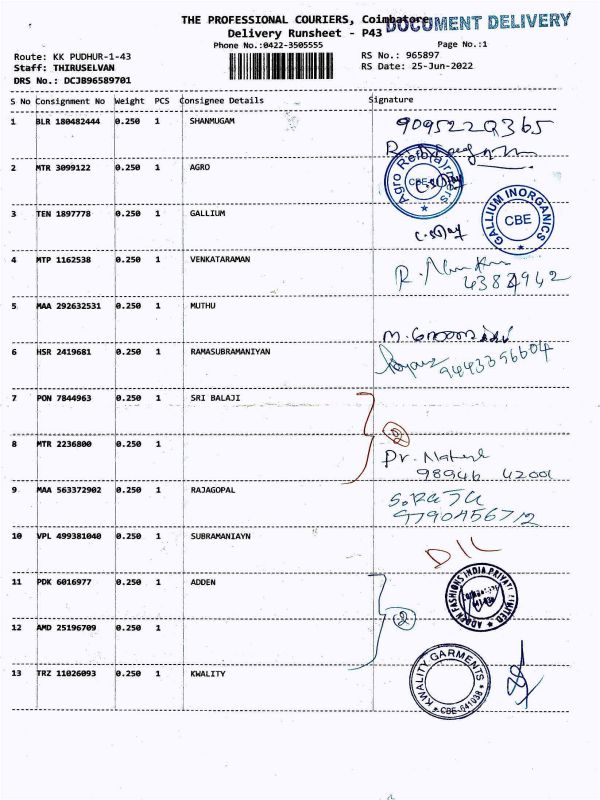 THE PROFESSIONAL COURIERS, Coimbatore
DOCUMENT DELIVERY
Delivery Runsheet - P43
Phone No.:0422-3505555
Page No.:1
Route: KK PUDHUR-1-43
RS No.: 965897
Staff: THIRUSELVAN
RS Date: 25-Jun-2022
DRS No.: DCJB96589701
S No Consignment No Weight PCS Consignee Details Signature
1 BLR 180482444 0.250 1 SHANMUGAM
2 MTR 3099122 0.250 1 AGRO
Agro
CBE
3 TEN 1897778 0.250 1 GALLIUM
GALLIUM INORGANICS
CBE
4 MTP 1162538 0.250 1 VENKATARAMAN
R.
4384942
5 MAA 292632531 0.250 1 MUTHU
M.
6 HSR 2419681 0.250 1 RAMASUBRAMANIYAN
9443396604
7 PON 7844963 0.250 1 SRI BALAJI
2
8 MTR 2236800 0.250 1
Dr.
98946 42001
9 MAA 563372902 0.250 1 RAJAGOPAL
S. RAJU
9790456712
10 VPL 499381040 0.250 1 SUBRAMANIAYN
D/L
11 PDK 6016977 0.250 1 ADDEN
ADDEN FASHIONS INDIA PRIVATE LIMITED
2
12 AMD 25196709 0.250 1
13 TRZ 11026093 0.250 1 KWALITY
KWALITY GARMENTS
CBE-641038